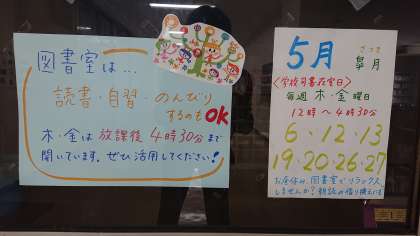 図書室は…
読書・自習・のんびり
するのもOK
木・金は放課後4時30分まで
開いています。ぜひ活用してください!
5月
さつき
皐月
〈学校司書在室日〉
毎週 木・金曜日
12時〜4時30分
6・12・13
19・20・26・27
お昼休み、図書室でリラックス
しませんか?